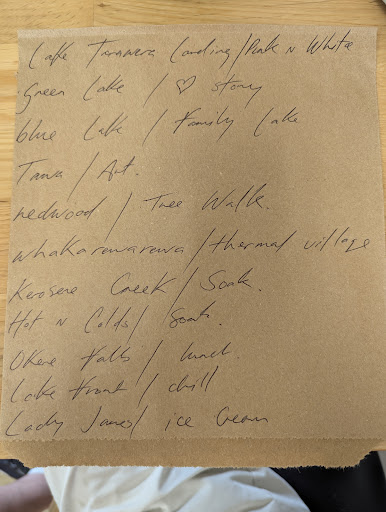 Lake Tarawera Landing/Pink n White
Green Lake / ♡ story
blue Lake / Family Lake
Tawa / Art.
redwood / Tree Walk.
whakarewarewa/thermal village
Kerosene Creek / Soak.
Hot n Colds/ Soak.
Okere Falls / lunch
Lake Front / chill
Lady Janes/ ice Cream